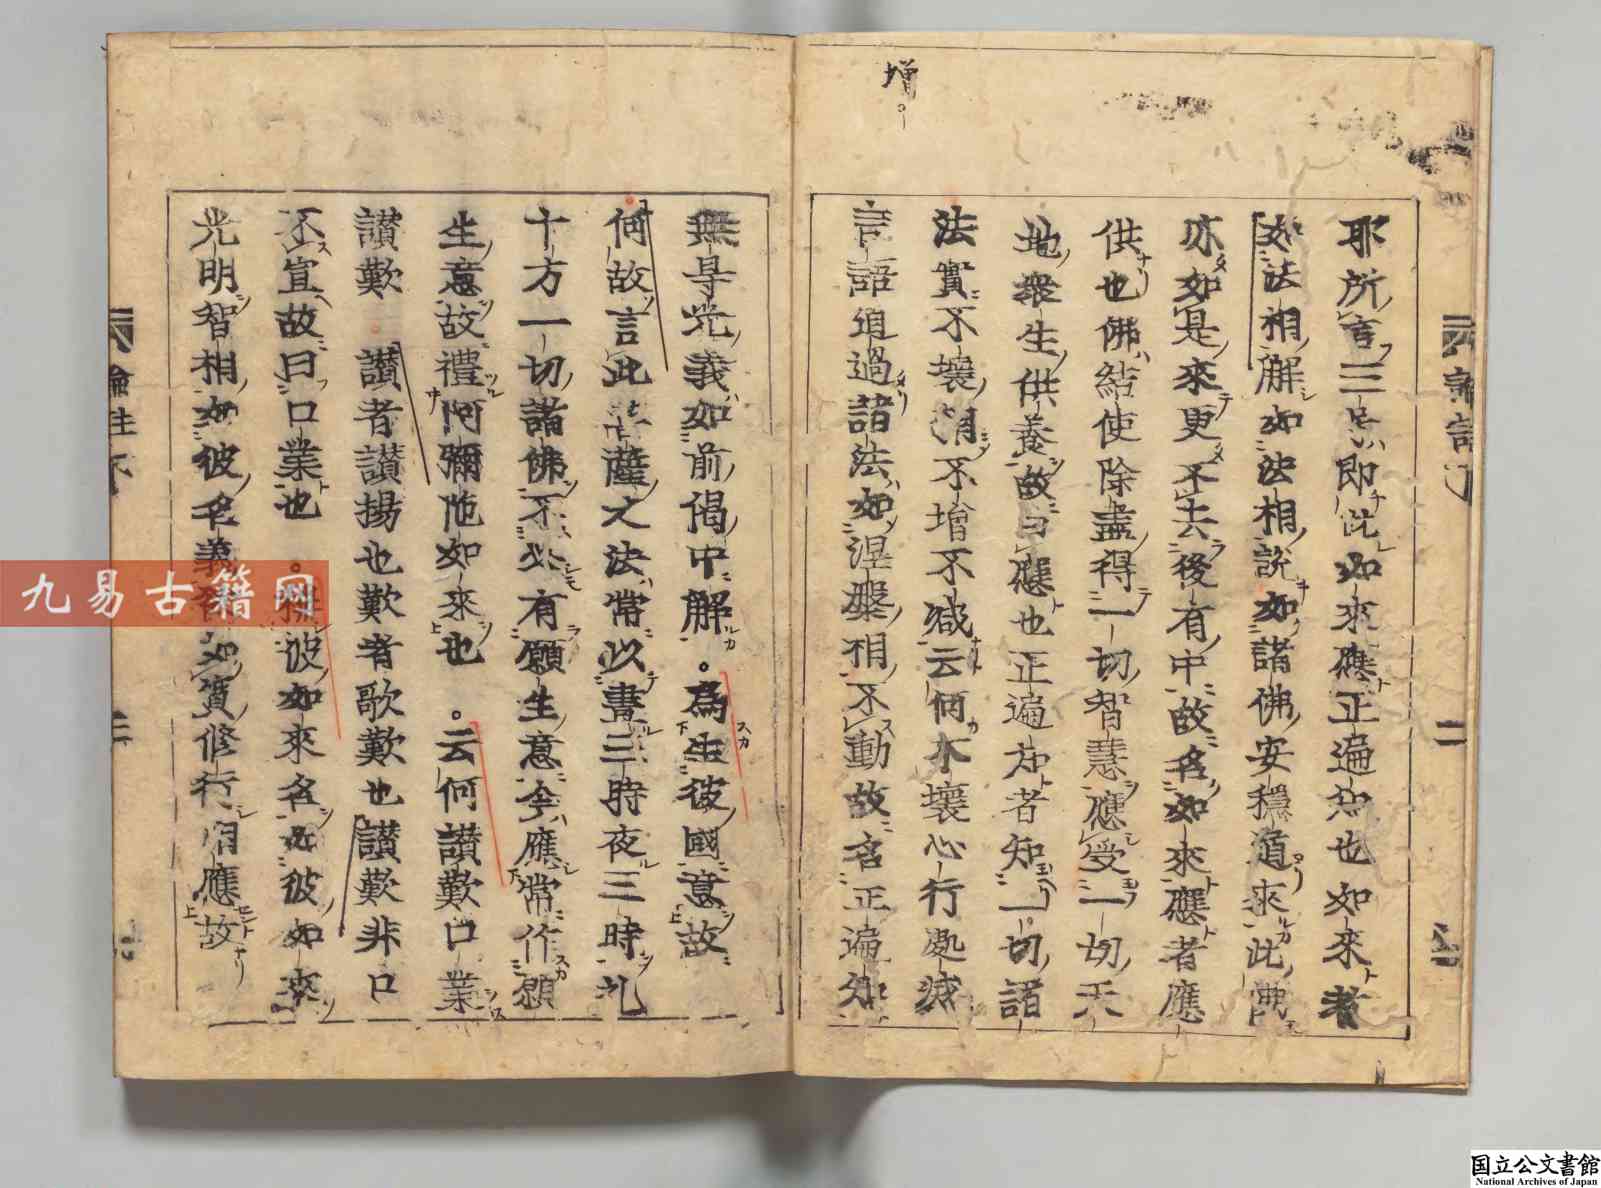 増
耶所言三号即此如來應正遍知也如來者
如法相解如法相說如諸佛安穩道來此佛
亦如是來更不去後有中故名如來應者應
供也佛結使除盡得一切智慧應受一切天
地衆生供養故曰應也正遍知者知一切諸
法實不壞相不增不減云何不壞心行處滅
言語道過諸法如涅槃相不動故名正遍知
無㝵光義如前偈中解。為生彼國意故
何故言此菩薩之法常以晝三時夜三時礼
十方一切諸佛不必有願生意今應常作願
生意故禮阿彌陁如來也。云何讃歎口業
讃歎 讃者讃揚也歎者歌歎也讃歎非口
不宣故曰口業也。稱彼如來名如彼如來
光明智相如彼名義欲如實修行相應故
論註下
二
九易古籍网
国立公文書館
National Archives of Japan